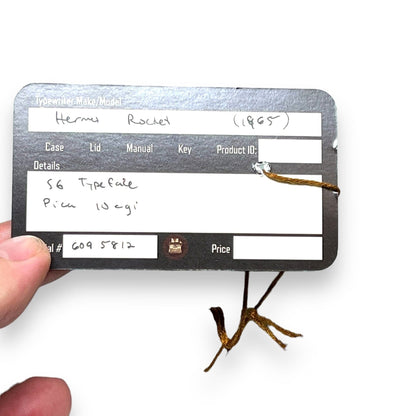 Typewriter Make/Model
Hermes Rocket (1965)
Case Lid Manual Key Product ID:
Details
S6 Typeface
Pica 10 cpi
al # 6095812 Price